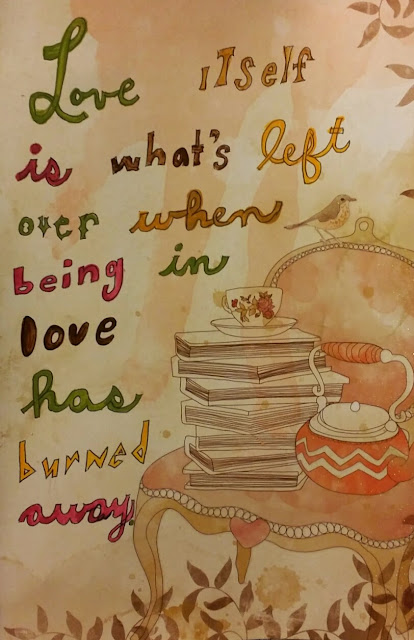 Love itself
is what's left
over when
being in
love
has
burned
away.